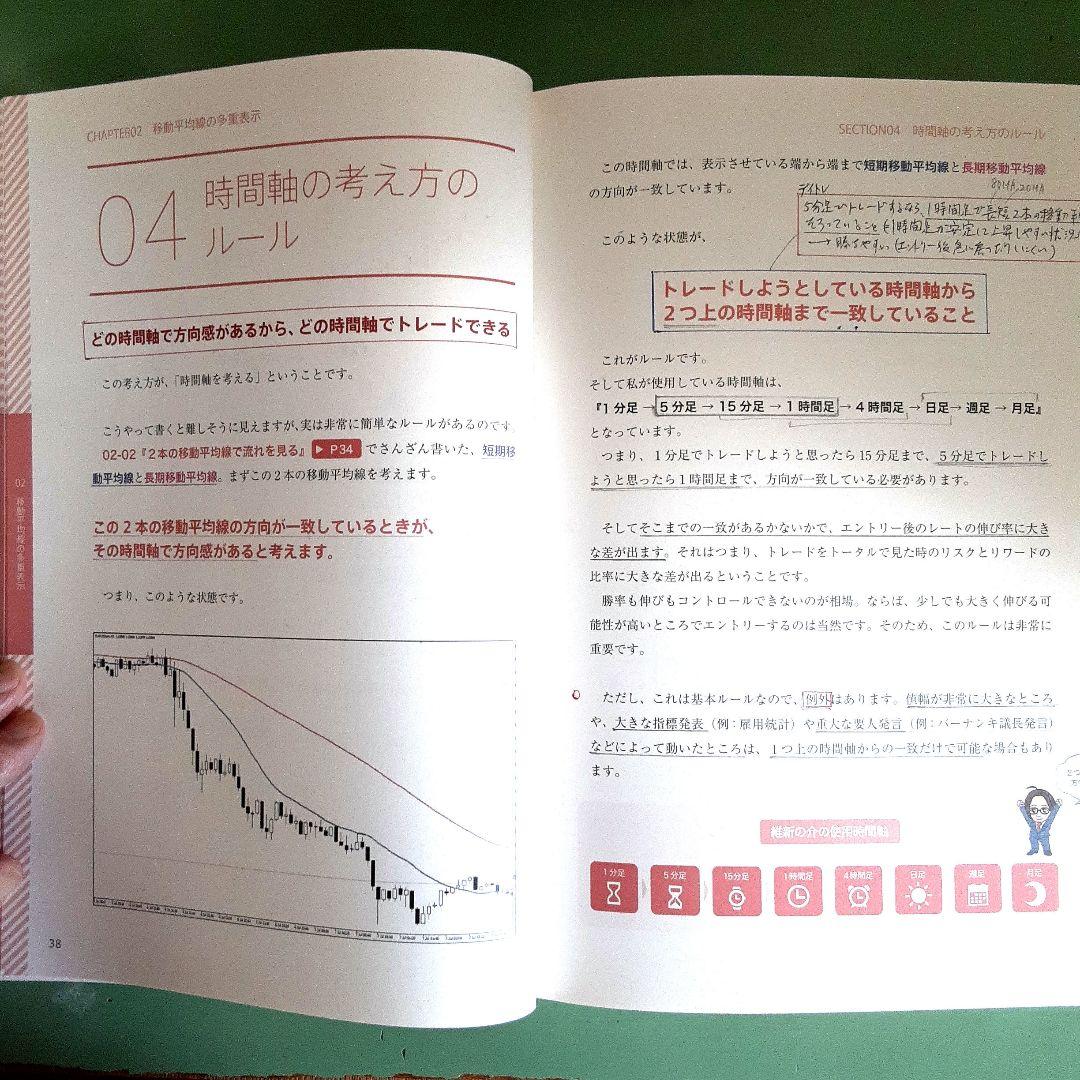 CHAPTER02 移動平均線の多重表示
04 時間軸の考え方の
ルール
どの時間軸で方向感があるから、どの時間軸でトレードできる
この考え方が、「時間軸を考える」ということです。
こうやって書くと難しそうに見えますが、実は非常に簡単なルールがあるのです。
02-02『2本の移動平均線で流れを見る』▶ P34 でさんざん書いた、短期移
動平均線と長期移動平均線。まずこの2本の移動平均線を考えます。
この2本の移動平均線の方向が一致しているときが、
その時間軸で方向感があると考えます。
つまり、このような状態です。
02 移動平均線の多重表示
38
SECTION04 時間軸の考え方のルール
この時間軸では、表示させている端から端まで短期移動平均線と長期移動平均線
の方向が一致しています。
デイトレ
80MA, 20MA
5分足でトレードするなら、1時間足で長短2本の移動平
そろっていること
1時間足が安定に上昇しやすい状況
→ 勝ちやすい(エントリー後急に戻ったりしにくい)
このような状態が、
トレードしようとしている時間軸から
2つ上の時間軸まで一致していること
これがルールです。
そして私が使用している時間軸は、
『1分足→5分足→15分足→1時間足→4時間足→日足→週足→月足』
となっています。
つまり、1分足でトレードしようと思ったら15分足まで、5分足でトレードし
ようと思ったら1時間足まで、方向が一致している必要があります。
そしてそこまでの一致があるかないかで、エントリー後のレートの伸び率に大き
な差が出ます。それはつまり、トレードをトータルで見た時のリスクとリワードの
比率に大きな差が出るということです。
勝率も伸びもコントロールできないのが相場。ならば、少しでも大きく伸びる可
能性が高いところでエントリーするのは当然です。そのため、このルールは非常に
重要です。
ただし、これは基本ルールなので、例外はあります。値幅が非常に大きなところ
や、大きな指標発表(例:雇用統計)や重大な要人発言(例:バーナンキ議長発言)
などによって動いたところは、1つ上の時間軸からの一致だけで可能な場合もあり
ます。
維新の介の使用時間軸
1分足 5分足 15分足 1時間足 4時間足 日足 週足 月足